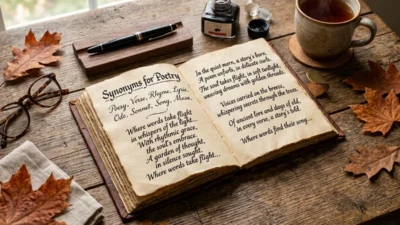 Synonyms for Poetry
Poesy, Verse, Rhyme, Lyric,
Ode, Sonnet, Song, Muse,
Where words take flight
in whispers of the light...
With rhythmic grace,
the soul's embrace,
A garden of thought,
in silence sought.
Where words take flight...
In the quiet mare, a story's born,
A poem unfurls, in delicate
The soul takes flight, in soft twilight,
weaving dreams with golden threads.
Voices carried on the breeze,
whispering secrets through the trees.
Of ancient lore and days of old,
in every verse, a story's told.
Where words find their song...